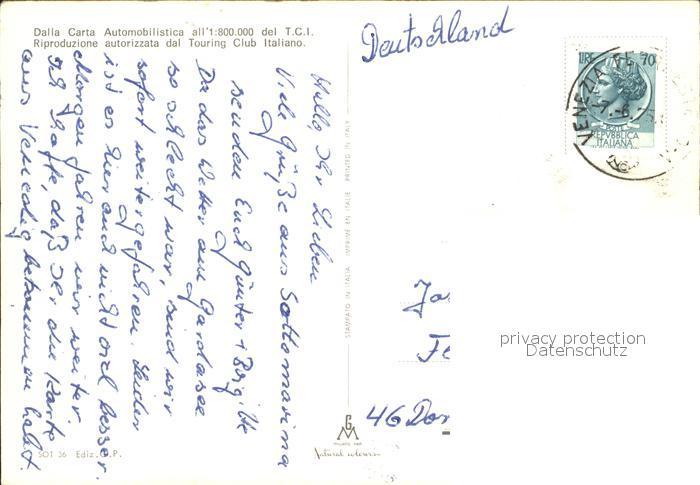 Dalla Carta Automobilistica all'1:800.000 del T.C.I.
Riproduzione autorizzata dal Touring Club Italiano.
Hallo, Ihr Lieben
Viele Grüße aus Sottomarina
senden Euch Günter + Brigitte
Da das Wetter am Gardasee
so schlecht war, sind wir
sofort weitergefahren. Leider
ist es hier auch nicht viel besser.
Morgen fahren wir weiter.
Ich hoffe, daß Ihr die Karte
aus Venedig bekommen habt.
SOT 36 Ediz. G.P.
STAMPATO IN ITALIA IMPRIMÉ EN ITALIE PRINTED IN ITALY
G
M
Natural colour
Deutschland
LIRE 70
REPVBBLICA
ITALIANA
VENEZIA
Ja
Fe
46 Dor
privacy protection
Datenschutz